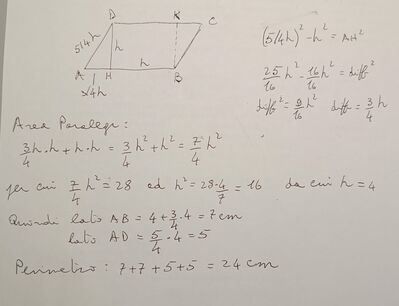 D K C
5/4h h
A H h B
3/4h
(5/4h)² - h² = AH²
25/16 h² - 16/16 h² = diff²
diff² = 9/16 h² diff = 3/4 h
Area Paralegr:
3/4 h·h + h·h = 3/4 h² + h² = 7/4 h²
per cui 7/4 h² = 28 ed h² = 28·4/7 = 16 da cui h = 4
Quindi lato AB = 4 + 3/4·4 = 7 cm
lato AD = 5/4·4 = 5
Perimetro: 7+7+5+5 = 24 cm